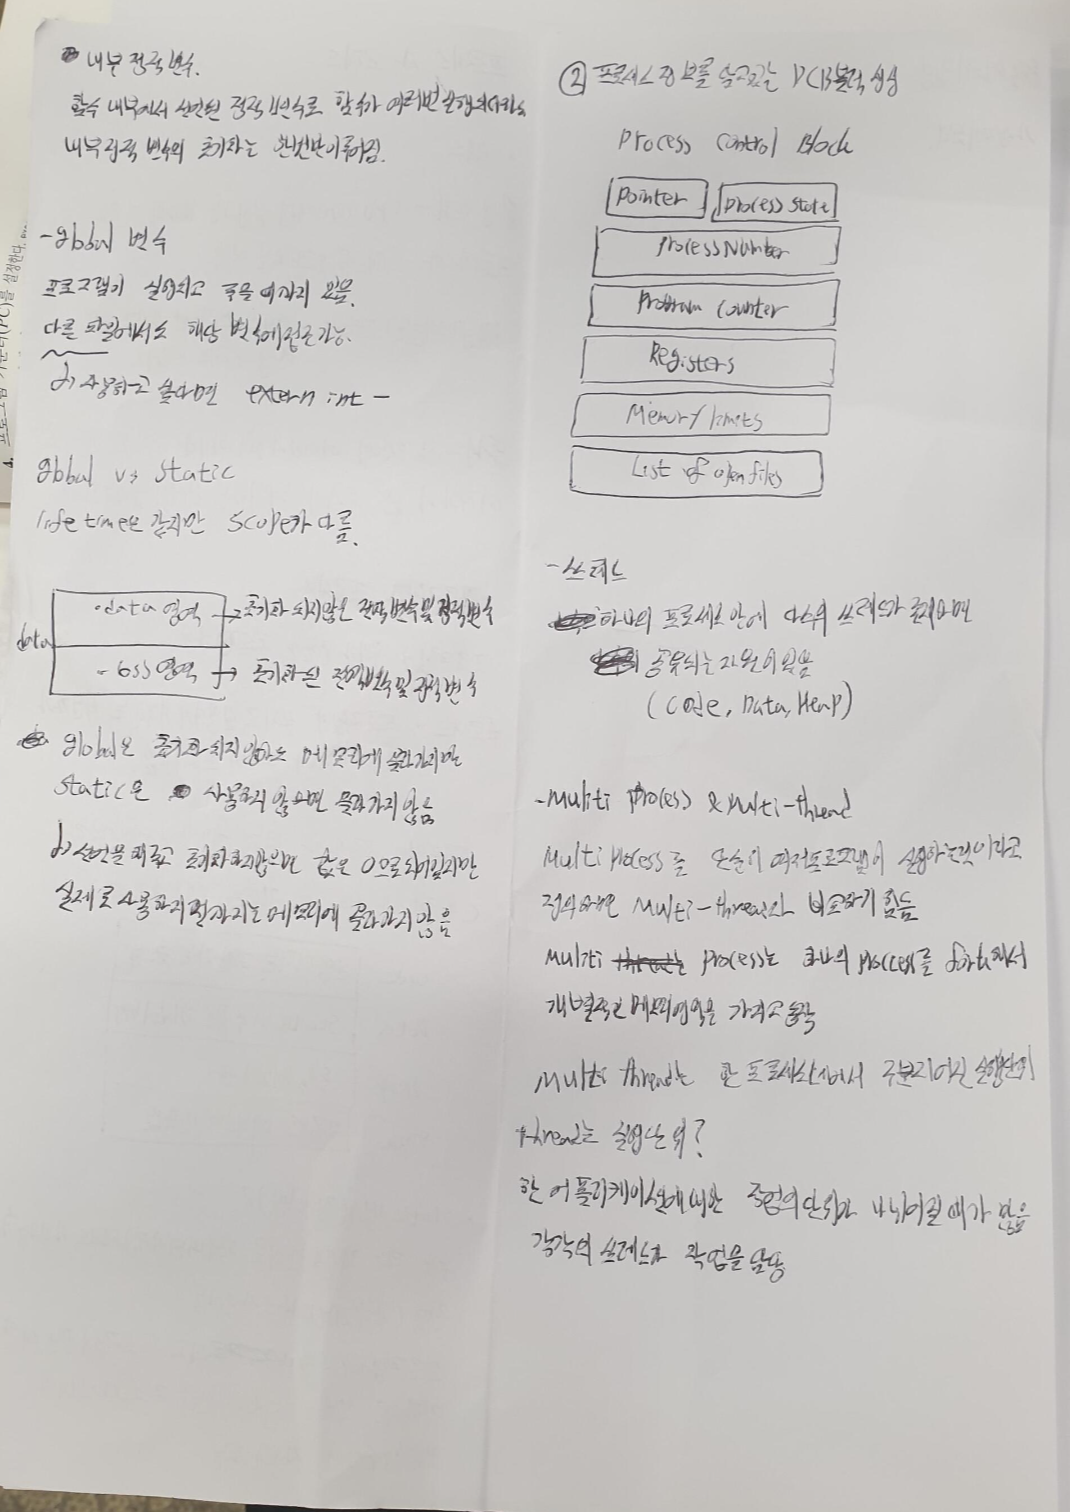 내부 정적 변수.
함수 내부에서 선언된 정적 변수로 함수가 여러번 실행되더라도
내부 정적 변수의 초기화는 한번만 이루어짐.
- global 변수
프로그램이 실행되고 죽을 때까지 있음.
다른 파일에서도 해당 변수에 접근 가능.
사용하고 싶다면 extern int -
global vs static
life time은 같지만 scope가 다름.
data
· data 영역 → 초기화 되지않은 전역 변수 및 정적 변수
- bss 영역 → 초기화된 전역변수 및 정적 변수
global은 초기화 되지 않아도 메모리에 올라가지만
static은 사용되지 않으면 올라가지 않음
선언을 해두고 초기화하지않으면 값은 0으로 되어있지만
실제로 사용하지 전까지는 메모리에 올라가지 않음
② 프로세스 정보를 담고있는 PCB블럭 생성
Process Control Block
Pointer
process state
Process Number
Program Counter
Registers
Memory limits
List of open files
- 쓰레드
하나의 프로세스 안에 다수의 쓰레드가 존재하면
공유되는 자원이 있음
(Code, Data, Heap)
- Muliti Process & Multi-thread
Multi Process를 단순히 여러프로그램이 실행하는것이라고
정의하면 Multi-thread와 비교하기 힘듬
Multi process는 하나의 process를 fork해서
개별적인 메모리영역을 가지고 동작
Multi thread는 한 프로세스 안에서 구분지어진 실행단위
thread는 실행단위?
한 어플리케이션에 대한 작업의 단위가 나뉘어질 때가 많음
각각의 쓰레드가 작업을 담당